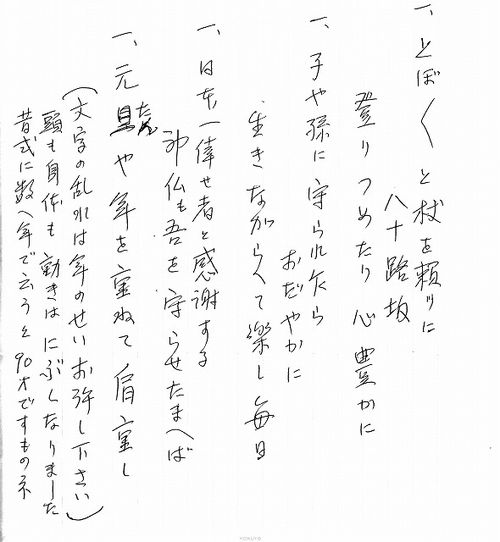 一、とぼ〱と杖を頼りに
八十路坂
登りつめたり心豊かに
一、子や孫に守られ乍ら
おだやかに
生きながらへて楽し毎日
一、日本一倖せ者と感謝する
神仏も吾を守らせたまへば
一、元旦や年を重ねて肩重し
たん
(文字の乱れは年のせいお許し下さい)
頭も身体も動きはにぶくなりました
昔式に数へ年で云うと90才ですものネ
KOKUYO